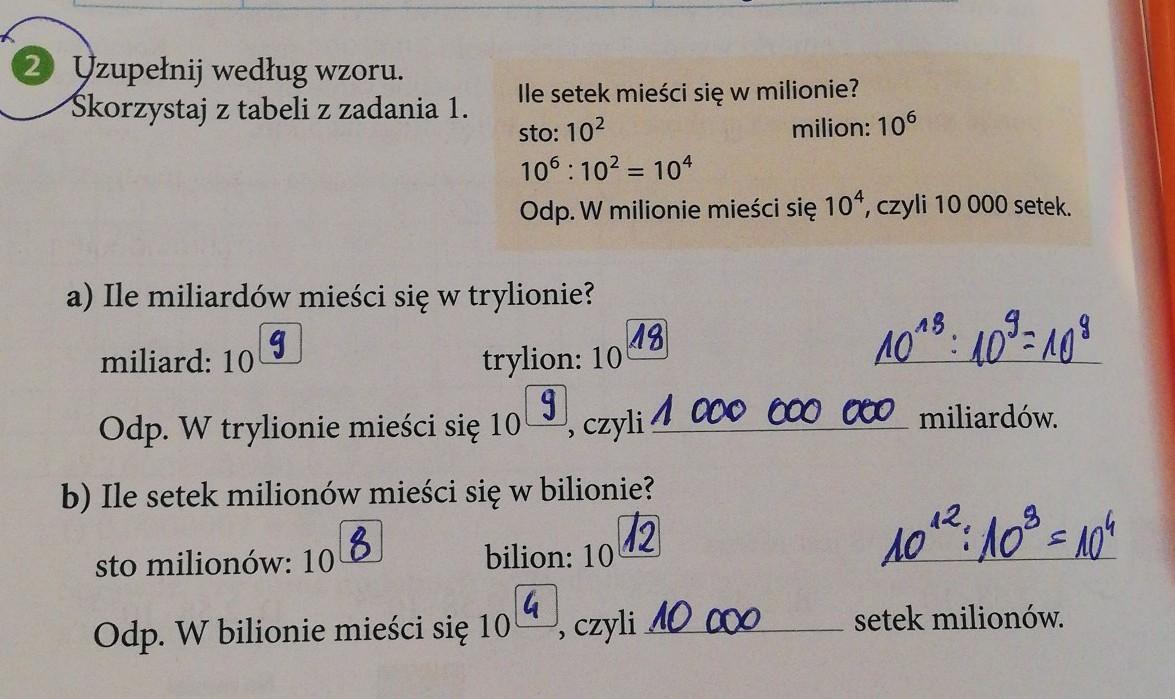 2 Uzupełnij według wzoru.
Skorzystaj z tabeli z zadania 1.
Ile setek mieści się w milionie?
sto: 10² milion: 10⁶
10⁶ : 10² = 10⁴
Odp. W milionie mieści się 10⁴, czyli 10 000 setek.
a) Ile miliardów mieści się w trylionie?
miliard: 10⁹ trylion: 10¹⁸ 10¹⁸ : 10⁹ = 10⁹
Odp. W trylionie mieści się 10⁹, czyli 1 000 000 000 miliardów.
b) Ile setek milionów mieści się w bilionie?
sto milionów: 10⁸ bilion: 10¹² 10¹² : 10⁸ = 10⁴
Odp. W bilionie mieści się 10⁴, czyli 10 000 setek milionów.